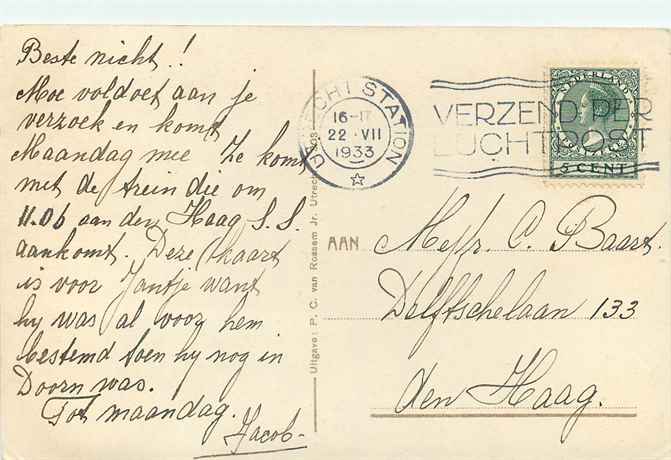 Beste nicht!
Moe voldoet aan je
verzoek en komt
Maandag mee. Ze komt
met de trein die om
11.06 aan den Haag S.S.
aankomt. Deze kaart
is voor Jantje want
hy was al voor hem
bestemd toen hy nog in
Doorn was.
Tot maandag.
Jacob
Uitgave: P. C. van Rossem Jr. Utrecht
UTRECHT STATION
16-17
22 VII
1933
VERZEND PER
LUCHTPOST
NEDERLAND
5 CENT
AAN
Mejpr. C. Baart
Delftschelaan 133
den Haag.